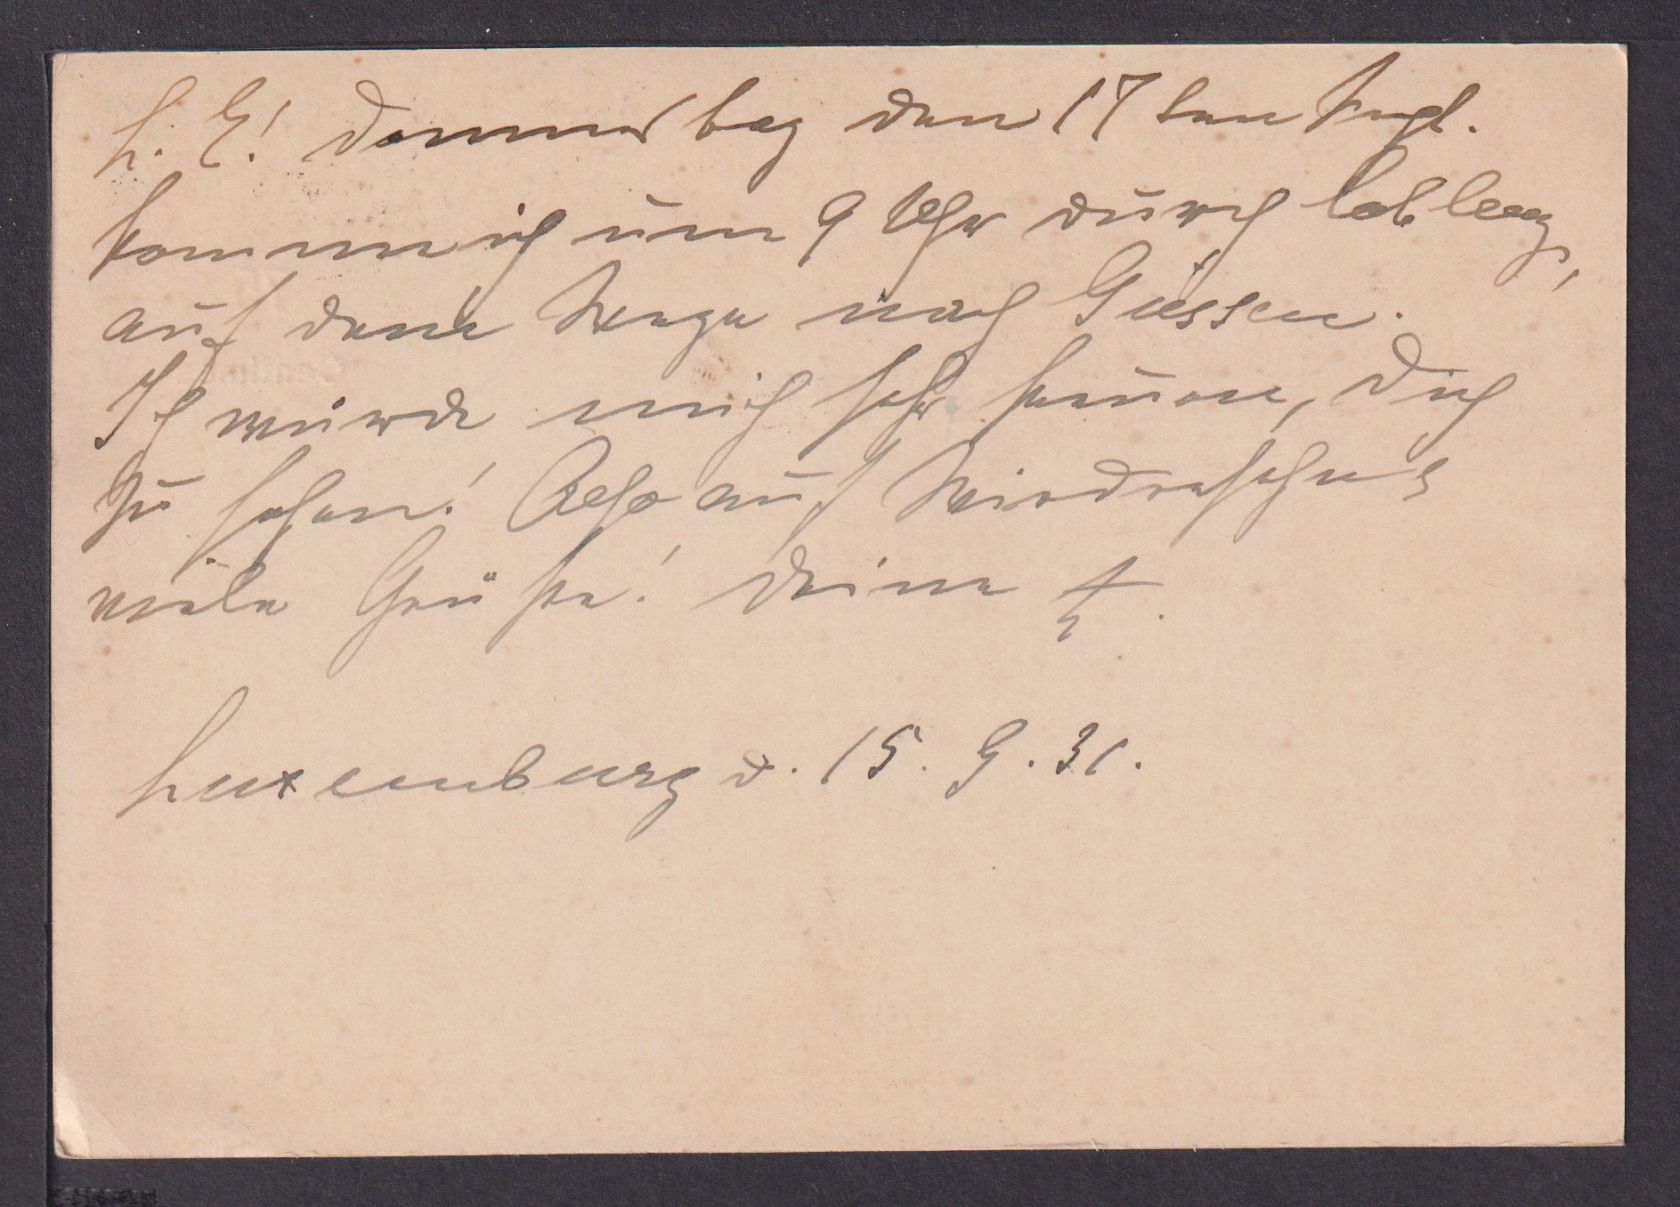 L. E! Donnerstag den 17ten Sept.
komme ich um 9 Uhr durch Coblenz,
auf dem Wege nach Giessen.
Ich würde mich sehr freuen, Dich
zu sehen! Also auf Wiedersehen &
viele Grüße! Deine
Luxemburg d. 15. 9. 31.